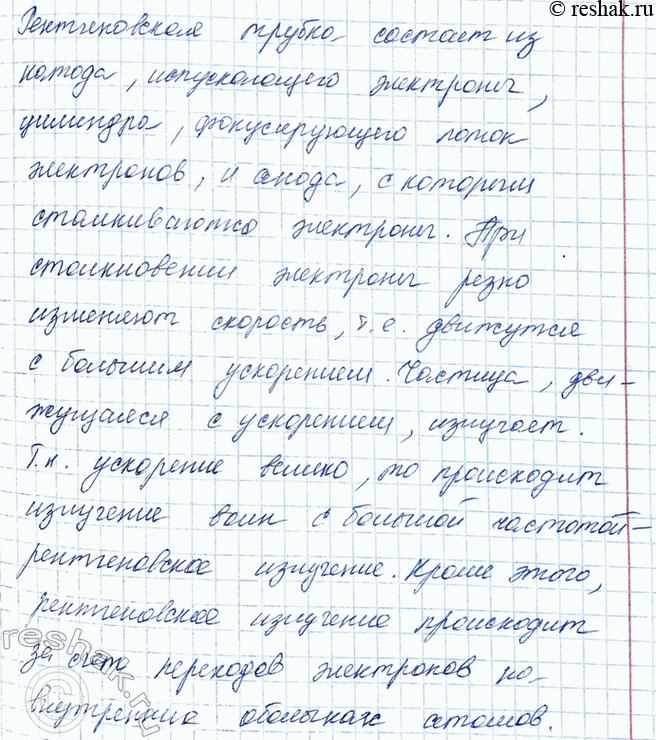 © reshak.ru
Рентгеновская трубка состоит из
катода, испускающего электроны,
цилиндра, фокусирующего поток
электронов, и анода, с которым
сталкиваются электроны. При
столкновении электроны резко
изменяют скорость, т.е. движутся
с большим ускорением. Частица, дви-
жущаяся с ускорением, излучает.
Т.к. ускорение велико, то происходит
излучение волн с большой частотой-
рентгеновское излучение. Кроме этого,
рентгеновское излучение происходит
за счет переходов электронов на
внутренние оболочках атомов.
reshak.ru